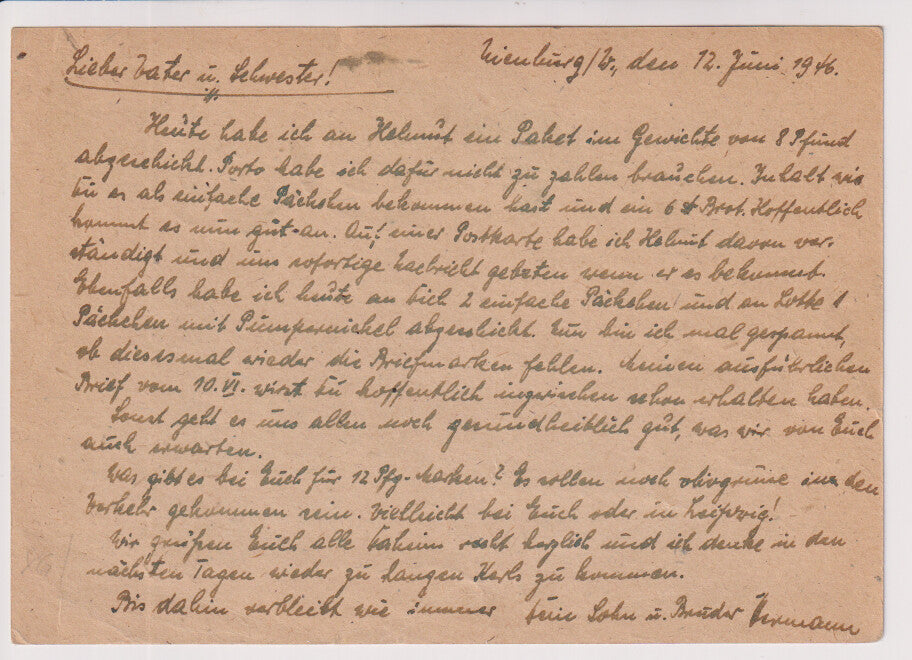 Nienburg/W., den 12. Juni 1946.
Lieber Vater u. Schwester!
Heute habe ich an Helmut ein Paket im Gewichte von 8 Pfund
abgeschickt. Porto habe ich dafür nicht zu zahlen brauchen. Inhalt wie
Du es als einfache Päckchen bekommen hast und ein 6 ℔ Brot. Hoffentlich
kommt es nun gut an. Auf einer Postkarte habe ich Helmut davon ver-
ständigt und um sofortige Nachricht gebeten wenn er es bekommt.
Ebenfalls habe ich heute an Dich 2 einfache Päckchen und an Lotte 1
Päckchen mit Pumpernickel abgeschickt. Nun bin ich mal gespannt,
ob diesesmal wieder die Briefmarken fehlen. Meinen ausführlichen
Brief vom 10. VI. wirst Du hoffentlich inzwischen schon erhalten haben.
Sonst geht es uns allen noch gesundheitlich gut, was wir von Euch
auch erwarten.
Was gibt es bei Euch für 12 Pfg-Marken? Es sollen noch olivgrüne in den
Verkehr gekommen sein. Vielleicht bei Euch oder in Leipzig!
Wir grüßen Euch alle daheim recht herzlich und ich denke in den
nächsten Tagen wieder zu Langen Karls zu kommen.
Bis dahin verbleibt wie immer Dein Sohn u. Bruder Hermann